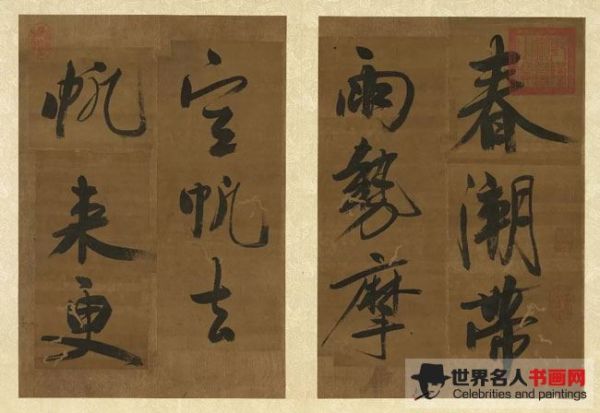 春潮帶
雨勢摩
空帆去
帆来更
世界名人书画网
Celebrities and paintings